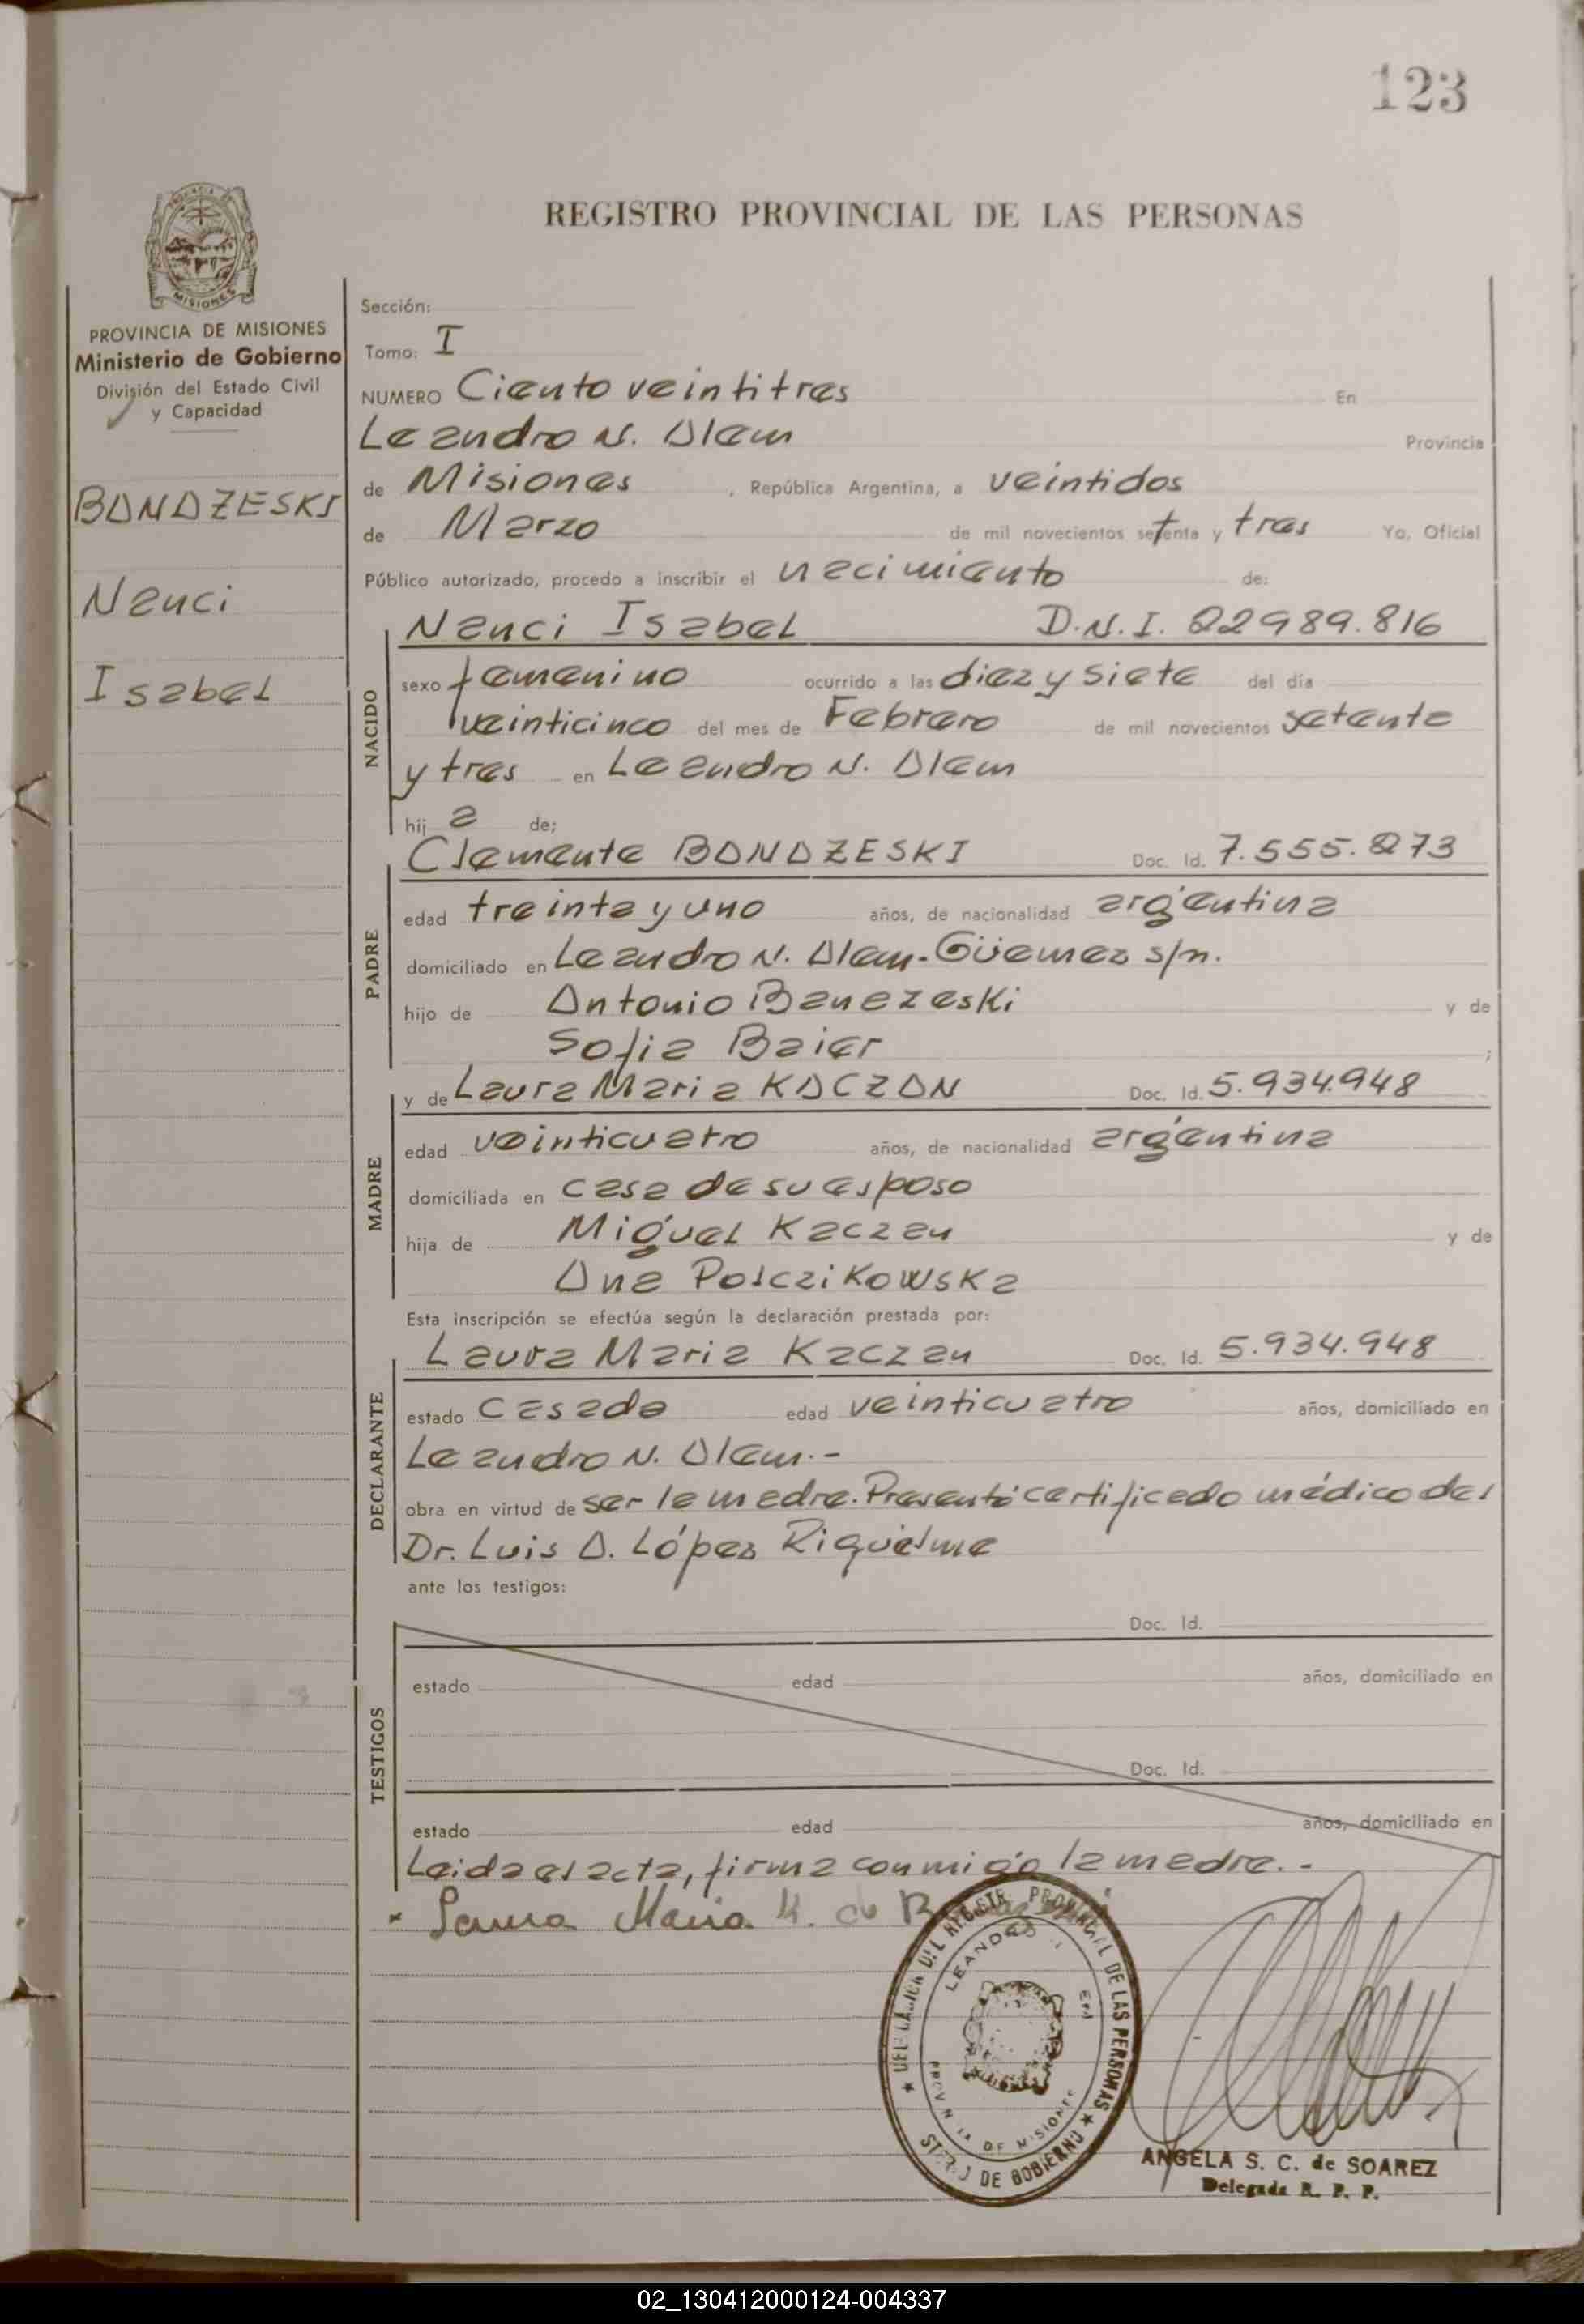 123
REGISTRO PROVINCIAL DE LAS PERSONAS
MISIONES
PROVINCIA DE MISIONES
Ministerio de Gobierno
División del Estado Civil
y Capacidad
BANAZESKI
Nanci
Isabel
Sección:
Tomo: I
NUMERO Ciento veintitres En
Leandro N. Alem Provincia
de Misiones , República Argentina, a veintidos
de Marzo de mil novecientos setenta y tres Yo, Oficial
Público autorizado, procedo a inscribir el nacimiento de:
NACIDO
Nanci Isabel D.N.I. 22989.816
sexo femenino ocurrido a las diez y siete del día
veinticinco del mes de Febrero de mil novecientos setenta
y tres en Leandro N. Alem
hij a de;
PADRE
Clemente BANAZESKI Doc. Id. 7.555.273
edad treinta y uno años, de nacionalidad argentina
domiciliado en Leandro N. Alem-Güemes s/n.
hijo de Antonio Banazeski y de
Sofia Baier ;
MADRE
y de Laura Maria KACZAN Doc. Id. 5.934.948
edad veinticuatro años, de nacionalidad argentina
domiciliada en casa de su esposo
hija de Miguel Kaczan y de
Ana Polczikowska
Esta inscripción se efectúa según la declaración prestada por:
DECLARANTE
Laura Maria Kaczan Doc. Id. 5.934.948
estado casada edad veinticuatro años, domiciliado en
Leandro N. Alem.-
obra en virtud de ser la madre. Presentó certificado médico del
Dr. Luis A. López Riquelme
ante los testigos:
TESTIGOS
Doc. Id.
estado edad años, domiciliado en
Doc. Id.
estado edad años, domiciliado en
Leida el acta, firma conmigo la madre.-
x Laura Maria K. de
DEL REGISTR PROVINCIAL DE LAS PERSONAS
DE GOBIERNO
DE MISIONES
ANGELA S. C. de SOAREZ
Delegada R. P. P.
02_130412000124-004337